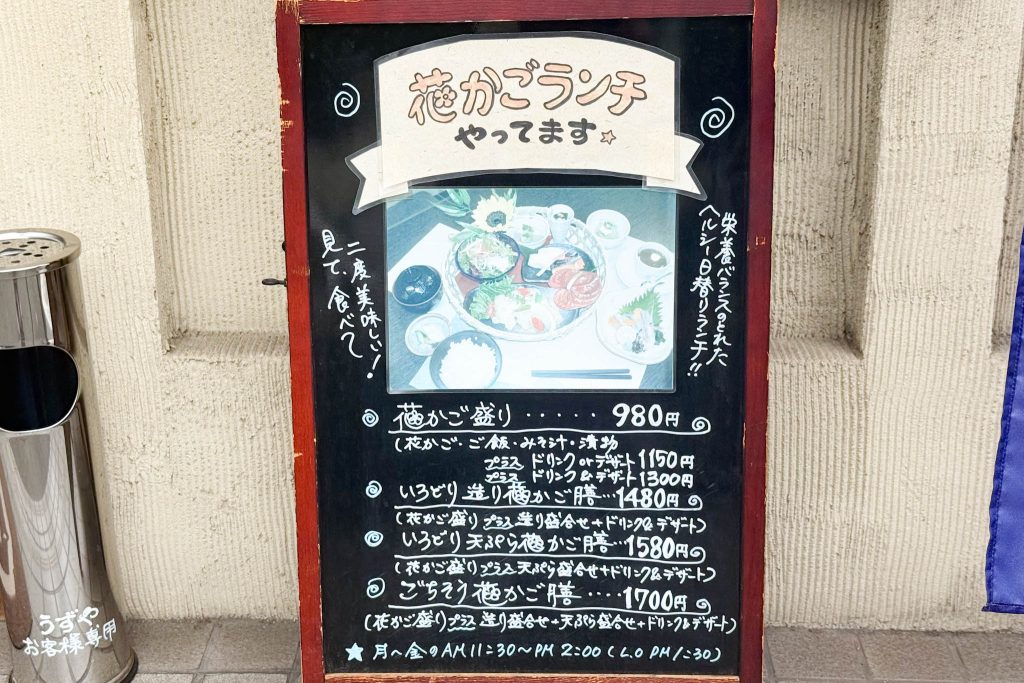 花かごランチ
やってます☆
栄養バランスのとれた
ヘルシー日替りランチ!!
見て、食べて
二度美味しい!
花かご盛り・・・・・980円
(花かご・ご飯・みそ汁・漬物
プラス ドリンク or デザート 1150円
プラス ドリンク & デザート 1300円
いろどり造り花かご膳…1480円
(花かご盛りプラス造り盛合せ+ドリンク&デザート)
いろどり天ぷら花かご膳…1580円
(花かご盛りプラス天ぷら盛合せ+ドリンク&デザート)
ごちそう花かご膳・・・・1700円
(花かご盛りプラス造り盛合せ+天ぷら盛合せ+ドリンク&デザート)
★月〜金のAM11:30〜PM2:00(L.O PM1:30)
うずや
お客様専用